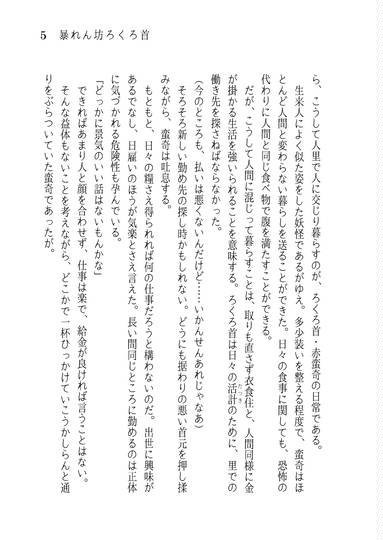 5　暴れん坊ろくろ首
ら、こうして人里で人に交じり暮らすのが、ろくろ首・赤蛮奇の日常である。
生来人によく似た姿をした妖怪であるがゆえ。多少装いを整える程度で、蛮奇はほ
とんど人間と変わらない暮らしを送ることができた。日々の食事に関しても、恐怖の
代わりに人間と同じ食べ物で腹を満たすことができる。
だが、こうして人間に混じって暮らすことは、取りも直さず衣食住と、人間同様に金
が掛かる生活を強いられることを意味する。ろくろ首は日々の活計のために、里での
たつき
働き先を探さねばならなかった。
（今のところも、払いは悪くないんだけど……いかんせんあれじゃなあ）
そろそろ新しい勤め先の探し時かもしれない。どうにも据わりの悪い首元を押し揉
みながら、蛮奇は吐息する。
もともと、日々の糧さえ得られれば何の仕事だろうと構わないのだ。出世に興味が
あるでなし、日雇いのほうが気楽とさえ言えた。長い間同じところに勤めるのは正体
に気づかれる危険性も孕んでいる。
「どっかに景気のいい話はないもんかな」
できればあまり人と顔を合わせず、仕事は楽で、給金が良ければ言うことはない。
そんな益体もないことを考えながら、どこかで一杯ひっかけていこうかしらんと通
りをぶらついていた蛮奇であったが。